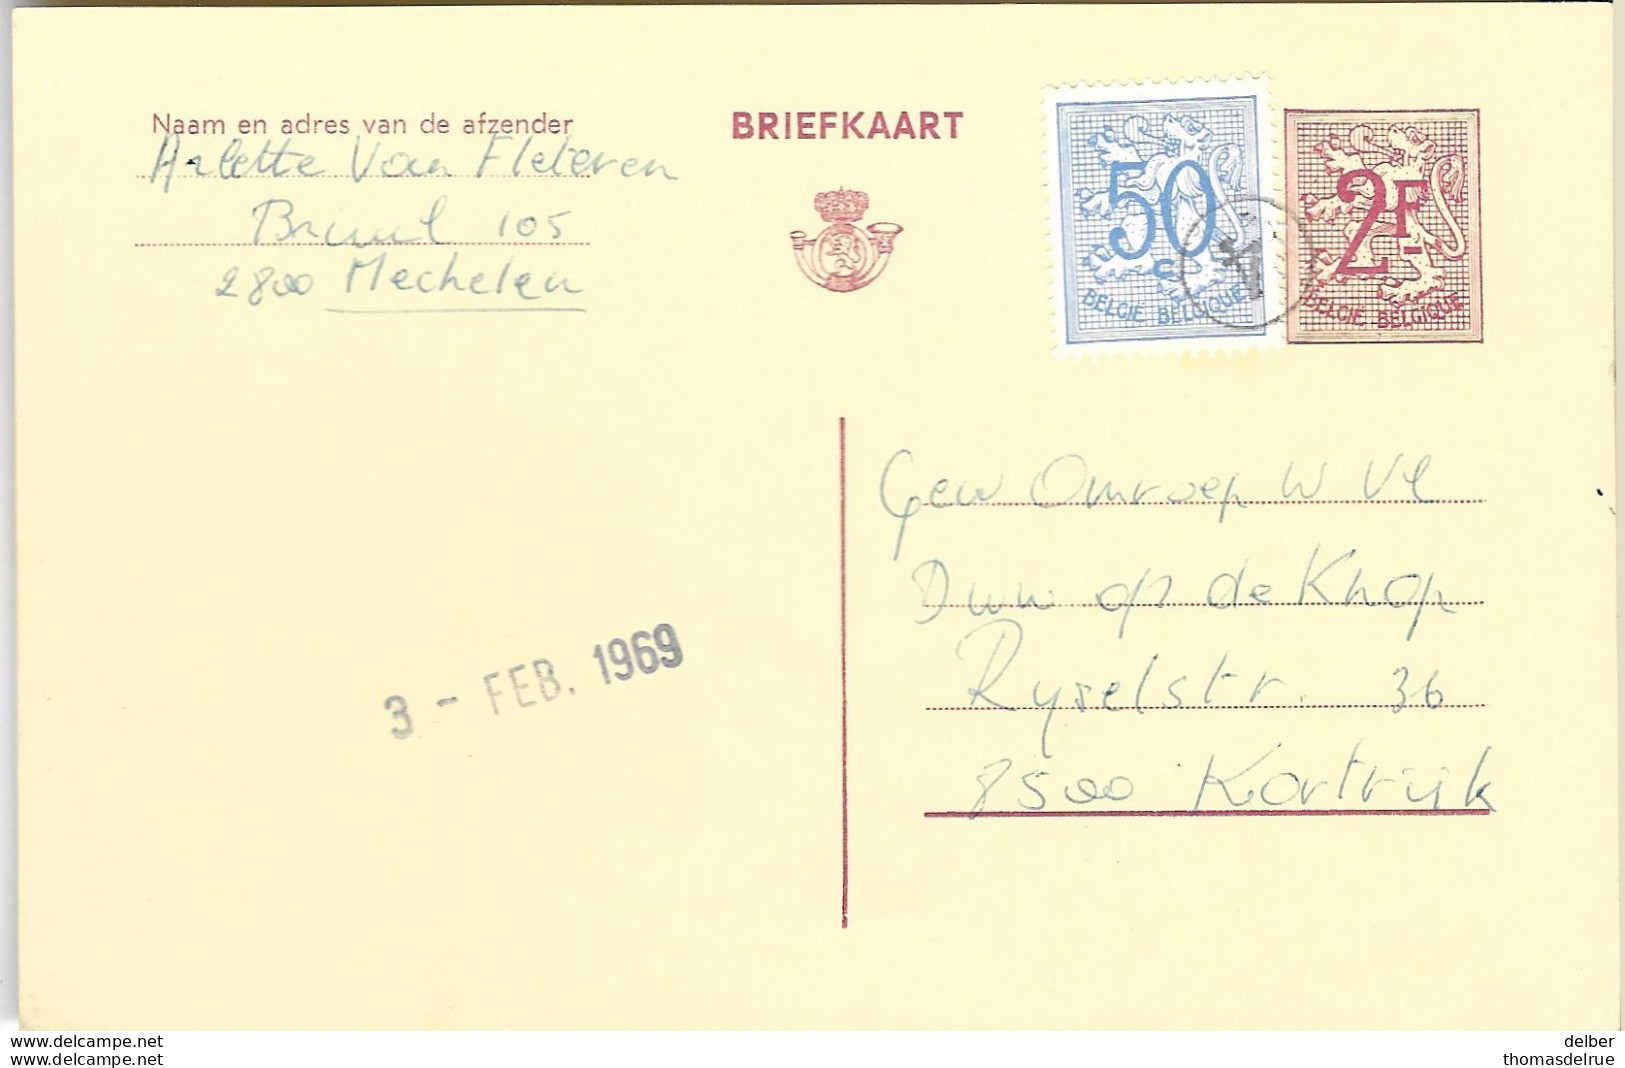 Naam en adres van de afzender
Arlette Van Fleteren
Bruul 105
2800 Mechelen
BRIEFKAART
50
C
BELGIË BELGIQUE
2F
BELGIË BELGIQUE
Gew Omroep W Vl
Duw op de Knop
Ryselstr. 36
8500 Kortrijk
3 - FEB. 1969
www.delcampe.net
www.delcampe.net
delber
thomasdelrue